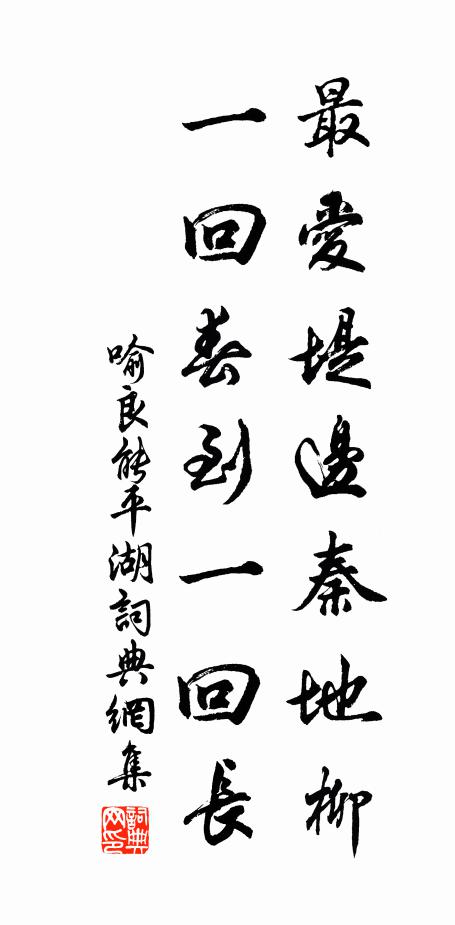 最愛堤邊秦地柳
一回春到一回長
喻良能平湖詞典網集
詞典網印